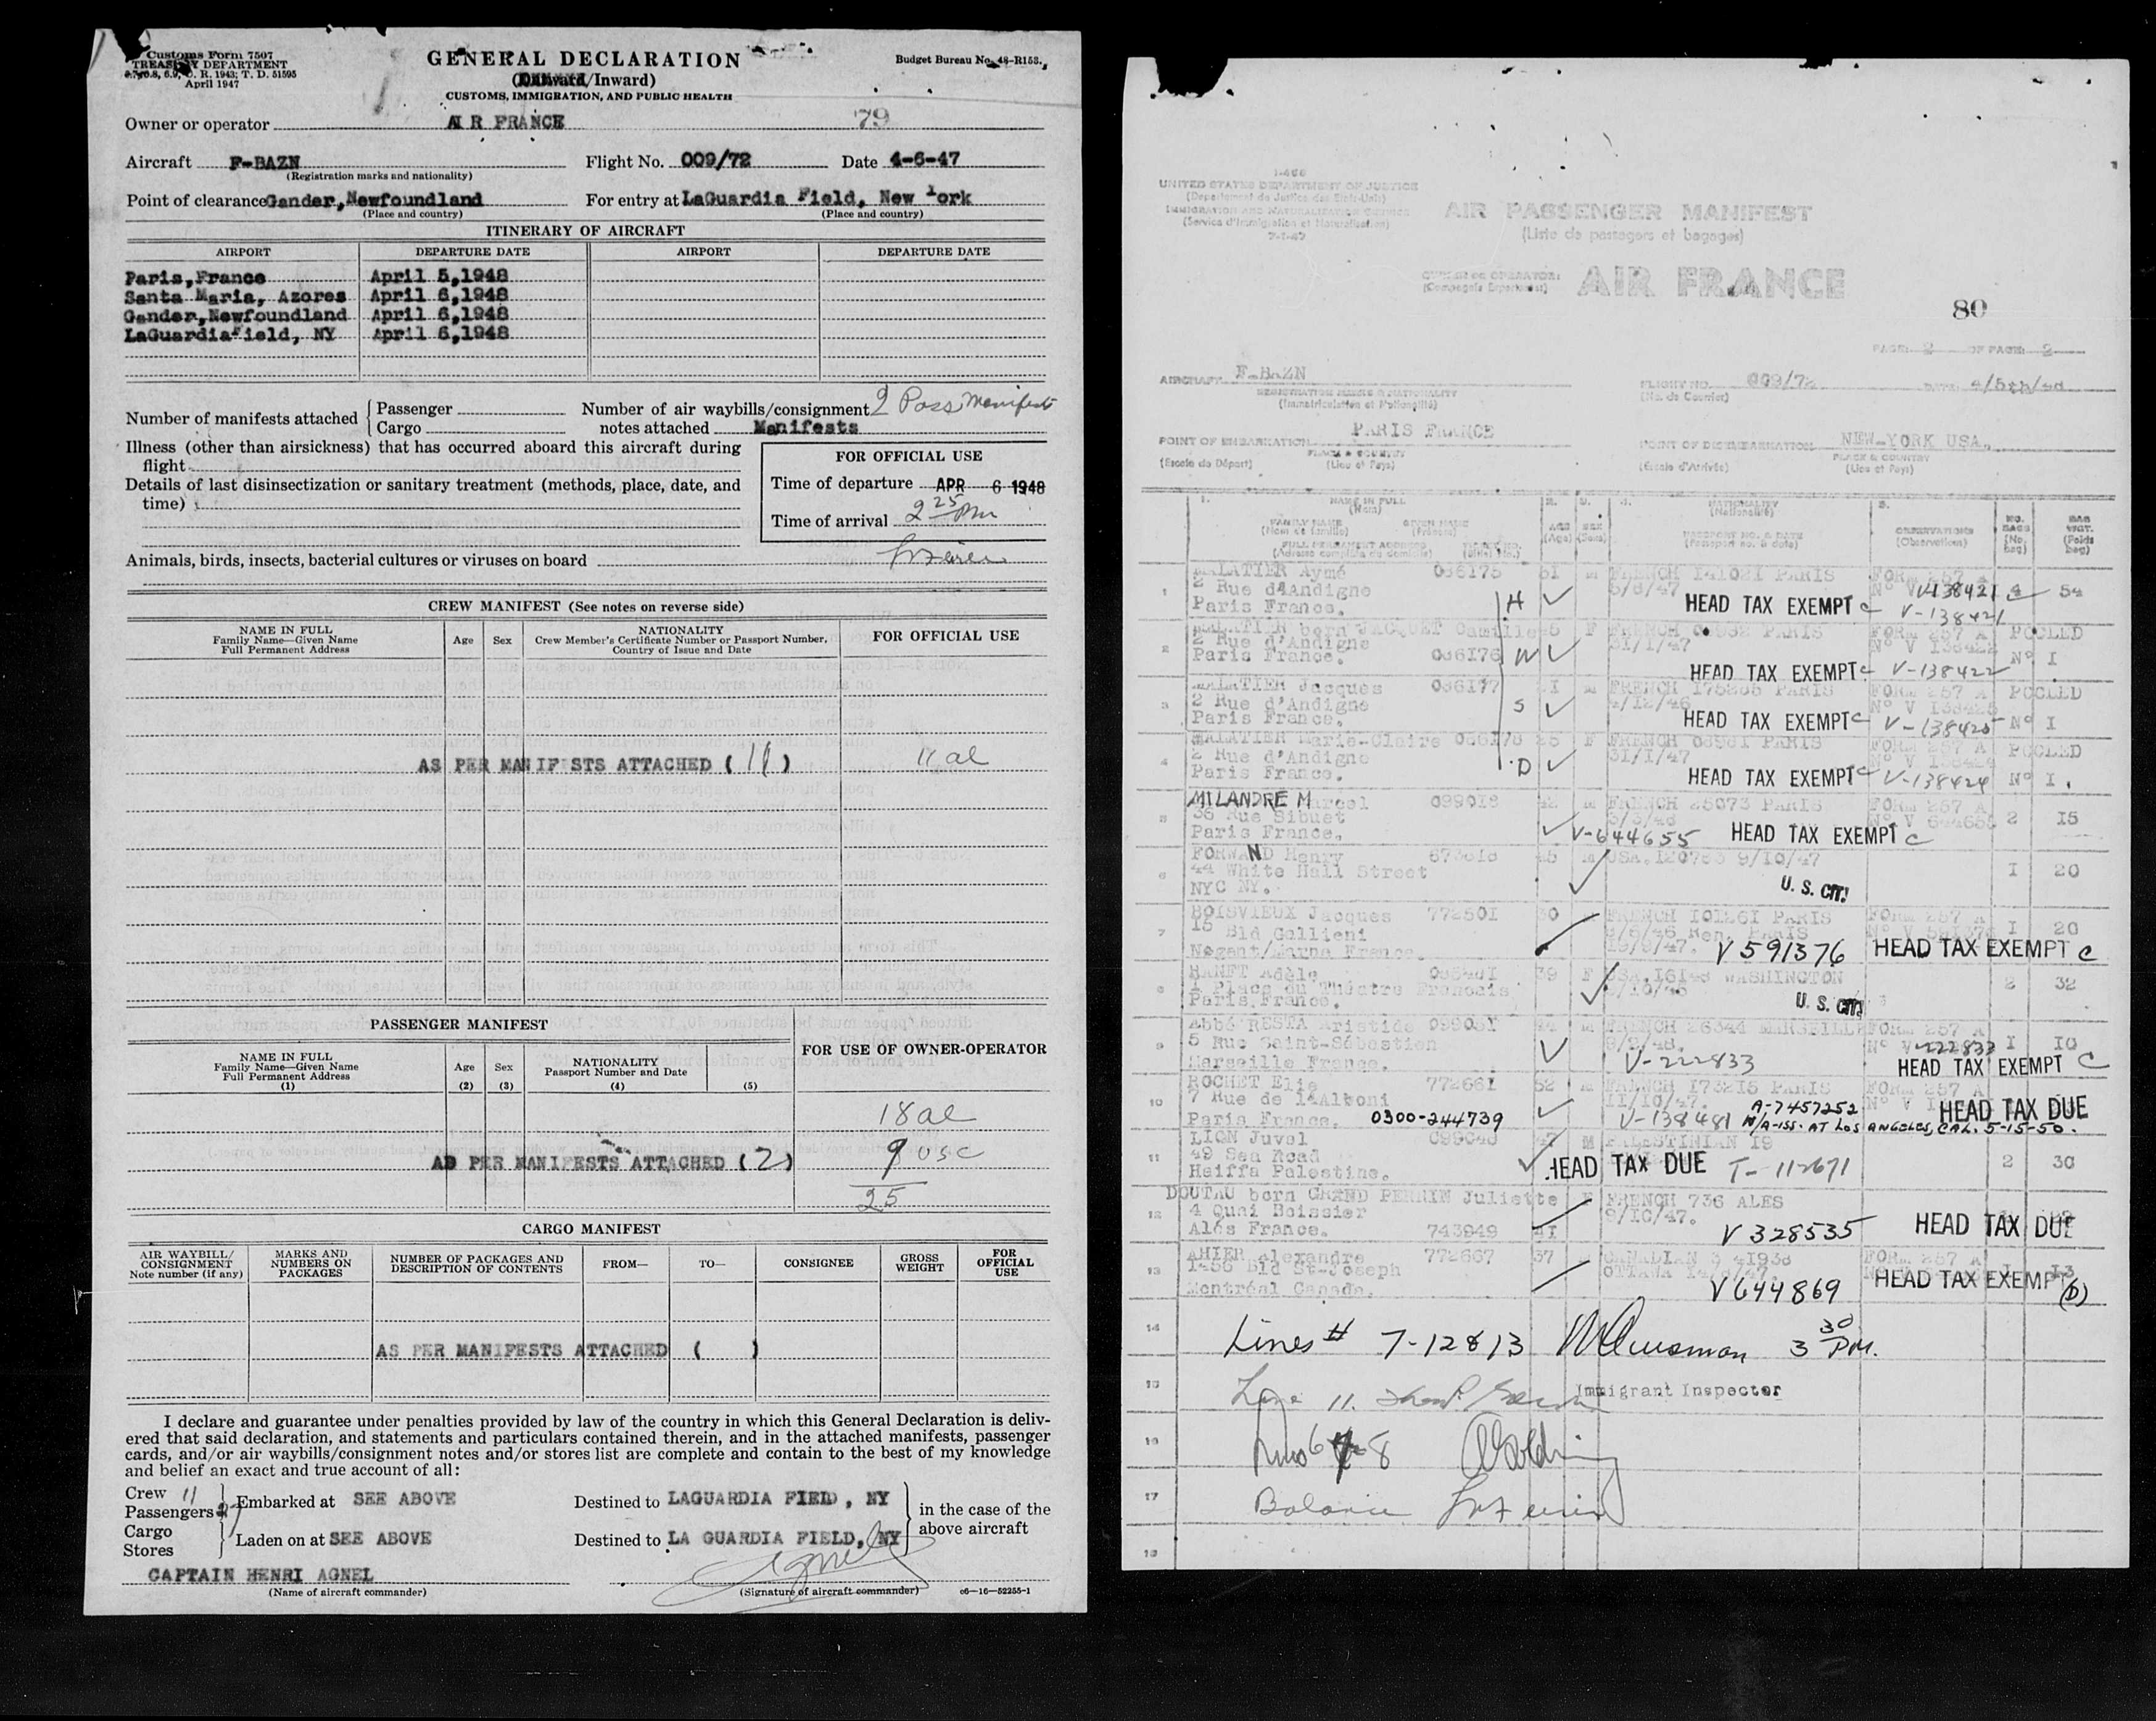 Customs Form 7507
TREASURY DEPARTMENT
April 1947
GENERAL DECLARATION
(Outward/Inward)
CUSTOMS, IMMIGRATION, AND PUBLIC HEALTH
Budget Bureau No. 48-R153.
Owner or operator AIR FRANCE 79
Aircraft F-BAZN Flight No. 009/72 Date 4-6-47
(Registration marks and nationality)
Point of clearance Gander, Newfoundland For entry at LaGuardia Field, New York
(Place and country) (Place and country)
ITINERARY OF AIRCRAFT
AIRPORT DEPARTURE DATE AIRPORT DEPARTURE DATE
Paris, France April 5, 1948
Santa Maria, Azores April 6, 1948
Gander, Newfoundland April 6, 1948
LaGuardia Field, NY April 6, 1948
Number of manifests attached { Passenger Number of air waybills/consignment 2 Pass Manifest
Cargo notes attached Manifests
Illness (other than airsickness) that has occurred aboard this aircraft during
flight
Details of last disinsectization or sanitary treatment (methods, place, date, and
time)
FOR OFFICIAL USE
Time of departure APR 6 1948
Time of arrival 2 25 PM
Animals, birds, insects, bacterial cultures or viruses on board
CREW MANIFEST (See notes on reverse side)
NAME IN FULL
Family Name—Given Name
Full Permanent Address
Age Sex
NATIONALITY
Crew Member's Certificate Number or Passport Number,
Country of Issue and Date
FOR OFFICIAL USE
AS PER MANIFESTS ATTACHED (11) 11 al
PASSENGER MANIFEST
FOR USE OF OWNER-OPERATOR
NAME IN FULL
Family Name—Given Name
Full Permanent Address
(1)
Age
(2)
Sex
(3)
NATIONALITY
Passport Number and Date
(4) (5)
18 al
AS PER MANIFESTS ATTACHED (2) 9 USC
25
CARGO MANIFEST
AIR WAYBILL/
CONSIGNMENT
Note number (if any)
MARKS AND
NUMBERS ON
PACKAGES
NUMBER OF PACKAGES AND
DESCRIPTION OF CONTENTS
FROM— TO— CONSIGNEE
GROSS
WEIGHT
FOR
OFFICIAL
USE
AS PER MANIFESTS ATTACHED ( )
I declare and guarantee under penalties provided by law of the country in which this General Declaration is deliv-
ered that said declaration, and statements and particulars contained therein, and in the attached manifests, passenger
cards, and/or air waybills/consignment notes and/or stores list are complete and contain to the best of my knowledge
and belief an exact and true account of all:
Crew 11
Passengers 27
Embarked at SEE ABOVE Destined to LAGUARDIA FIELD, NY
Cargo
Stores
Laden on at SEE ABOVE Destined to LA GUARDIA FIELD, NY
in the case of the
above aircraft
CAPTAIN HENRI AGNEL Agnel
(Name of aircraft commander) (Signature of aircraft commander) c6—16—52255-1
I-466
UNITED STATES DEPARTMENT OF JUSTICE
(Departement de Justice des Etats-Unis)
IMMIGRATION AND NATURALIZATION SERVICE
(Service d'Immigration et Naturalisation)
AIR PASSENGER MANIFEST
(Liste de passagers et bagages)
OWNER OR OPERATOR:
(Compagnie Exportatrice)
AIR FRANCE
80
PAGE: 2 OF PAGE: 2
AIRCRAFT F-BAZN FLIGHT NO. 009/72 DATE:
REGISTRATION MARKS & NATIONALITY
(Immatriculation et Nationalité) (No. de Courrier)
POINT OF EMBARKATION PARIS FRANCE POINT OF DISEMBARKATION NEW-YORK USA.
(Escale de Départ) PLACE & COUNTRY (Lieu et Pays) (Escale d'Arrivée) PLACE & COUNTRY (Lieu et Pays)
1. NAME IN FULL (Nom)
FAMILY NAME (Nom de famille) GIVEN NAME (Prénom)
AGE (Age) SEX (Sexe)
NATIONALITY (Nationalité)
PASSPORT NO. & DATE (Passeport no. & date)
OBSERVATIONS (Observations)
NO. BAGS (No. bag) BAG WGT. (Poids bag)
1 MALATIER Aymé 036175 51 M FRENCH 141021 PARIS FORM 257 A
2 Rue d'Andigne 5/6/47 N° V-138421 54
Paris France. H HEAD TAX EXEMPT c V-138421
2 MALATIER born JACQUET Camille F FRENCH PARIS FORM 257 A POOLED
2 Rue d'Andigne 31/1/47 N° V 138422
Paris France. 036176 W HEAD TAX EXEMPT c V-138422 N° I
3 MALATIER Jacques 036177 M FRENCH PARIS FORM 257 A POOLED
2 Rue d'Andigne 4/12/46 N° V
Paris France. S HEAD TAX EXEMPT c V-138425 N° I
4 MALATIER Marie-Claire 036178 25 F FRENCH PARIS FORM 257 A POOLED
2 Rue d'Andigne 31/1/47 N° V 138424
Paris France. D HEAD TAX EXEMPT c V-138424 N° I.
5 MILANDRE Marcel 099018 42 M FRENCH 25073 PARIS FORM 257 A
36 Rue Sibuet 2 15
Paris France. V-644655 HEAD TAX EXEMPT c
6 FORWAND Henry 45 M USA. 9/10/47
44 White Hall Street I 20
NYC NY. U. S. CIT!
7 BOISVIEUX Jacques 772501 30 FRENCH 101261 PARIS FORM 257 A I 20
15 Bld Gallieni Ren. PARIS
Nogent/Marne France. 19/9/47. V 591376 HEAD TAX EXEMPT c
8 HANFT Adèle 39 F USA. WASHINGTON
1 Place du Théatre Francais 2 32
Paris France. U. S. CIT!
9 Abbé RESTA Aristide M FRENCH 26344 MARSEILLE FORM 257 A
5 Rue Saint-Sébastien N° V-222833 I 10
Marseille France. V-222833 HEAD TAX EXEMPT C
10 ROCHET Elie 772661 52 M FRENCH 173215 PARIS FORM 257 A
7 Rue de l'Alboni 11/10/47. A-7457252 HEAD TAX DUE
Paris France. 0300-244739 V-138481 N/A-ISS. AT LOS ANGELES, CAL. 5-15-50.
11 LION Juvel 47 M PALESTINIAN 19
49 Sea Road HEAD TAX DUE T-112671 2 30
Haiffa Palestine.
12 DOUTAU born GRAND PERRIN Juliette F FRENCH 736 ALES
4 Quai Boissier 9/10/47. HEAD TAX DUE
Alés France. 743949 41 V 328535
13 AHIER Alexandre 772667 37 CANADIAN FORM 257 A
1456 Bld St-Joseph OTTAWA HEAD TAX EXEMPT (D) 13
Montréal Canada. V644869
14 Lines # 7-12 & 13 3 30 PM.
15 Line 11. Immigrant Inspector
16 Lines 6 & 8
17 Balance
18